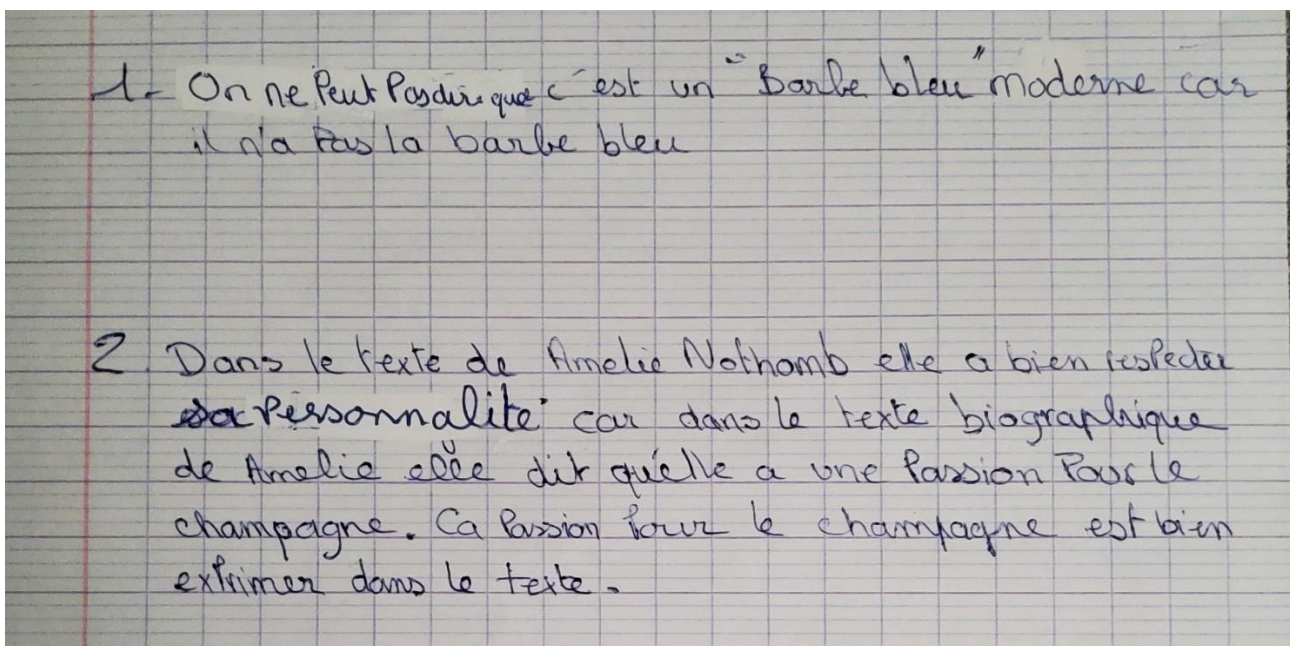 1. On ne Peut Pas dire que c'est un "Barbe bleu" moderne car
il n'a Pas la barbe bleu
2. Dans le texte de Amelie Nothomb elle a bien respecter
sa Personnalité car dans le texte biographique
de Amelie elle dit qu'elle a une Passion Pour le
champagne. Ca Passion Pour le champagne est bien
exPrimer dans le texte.